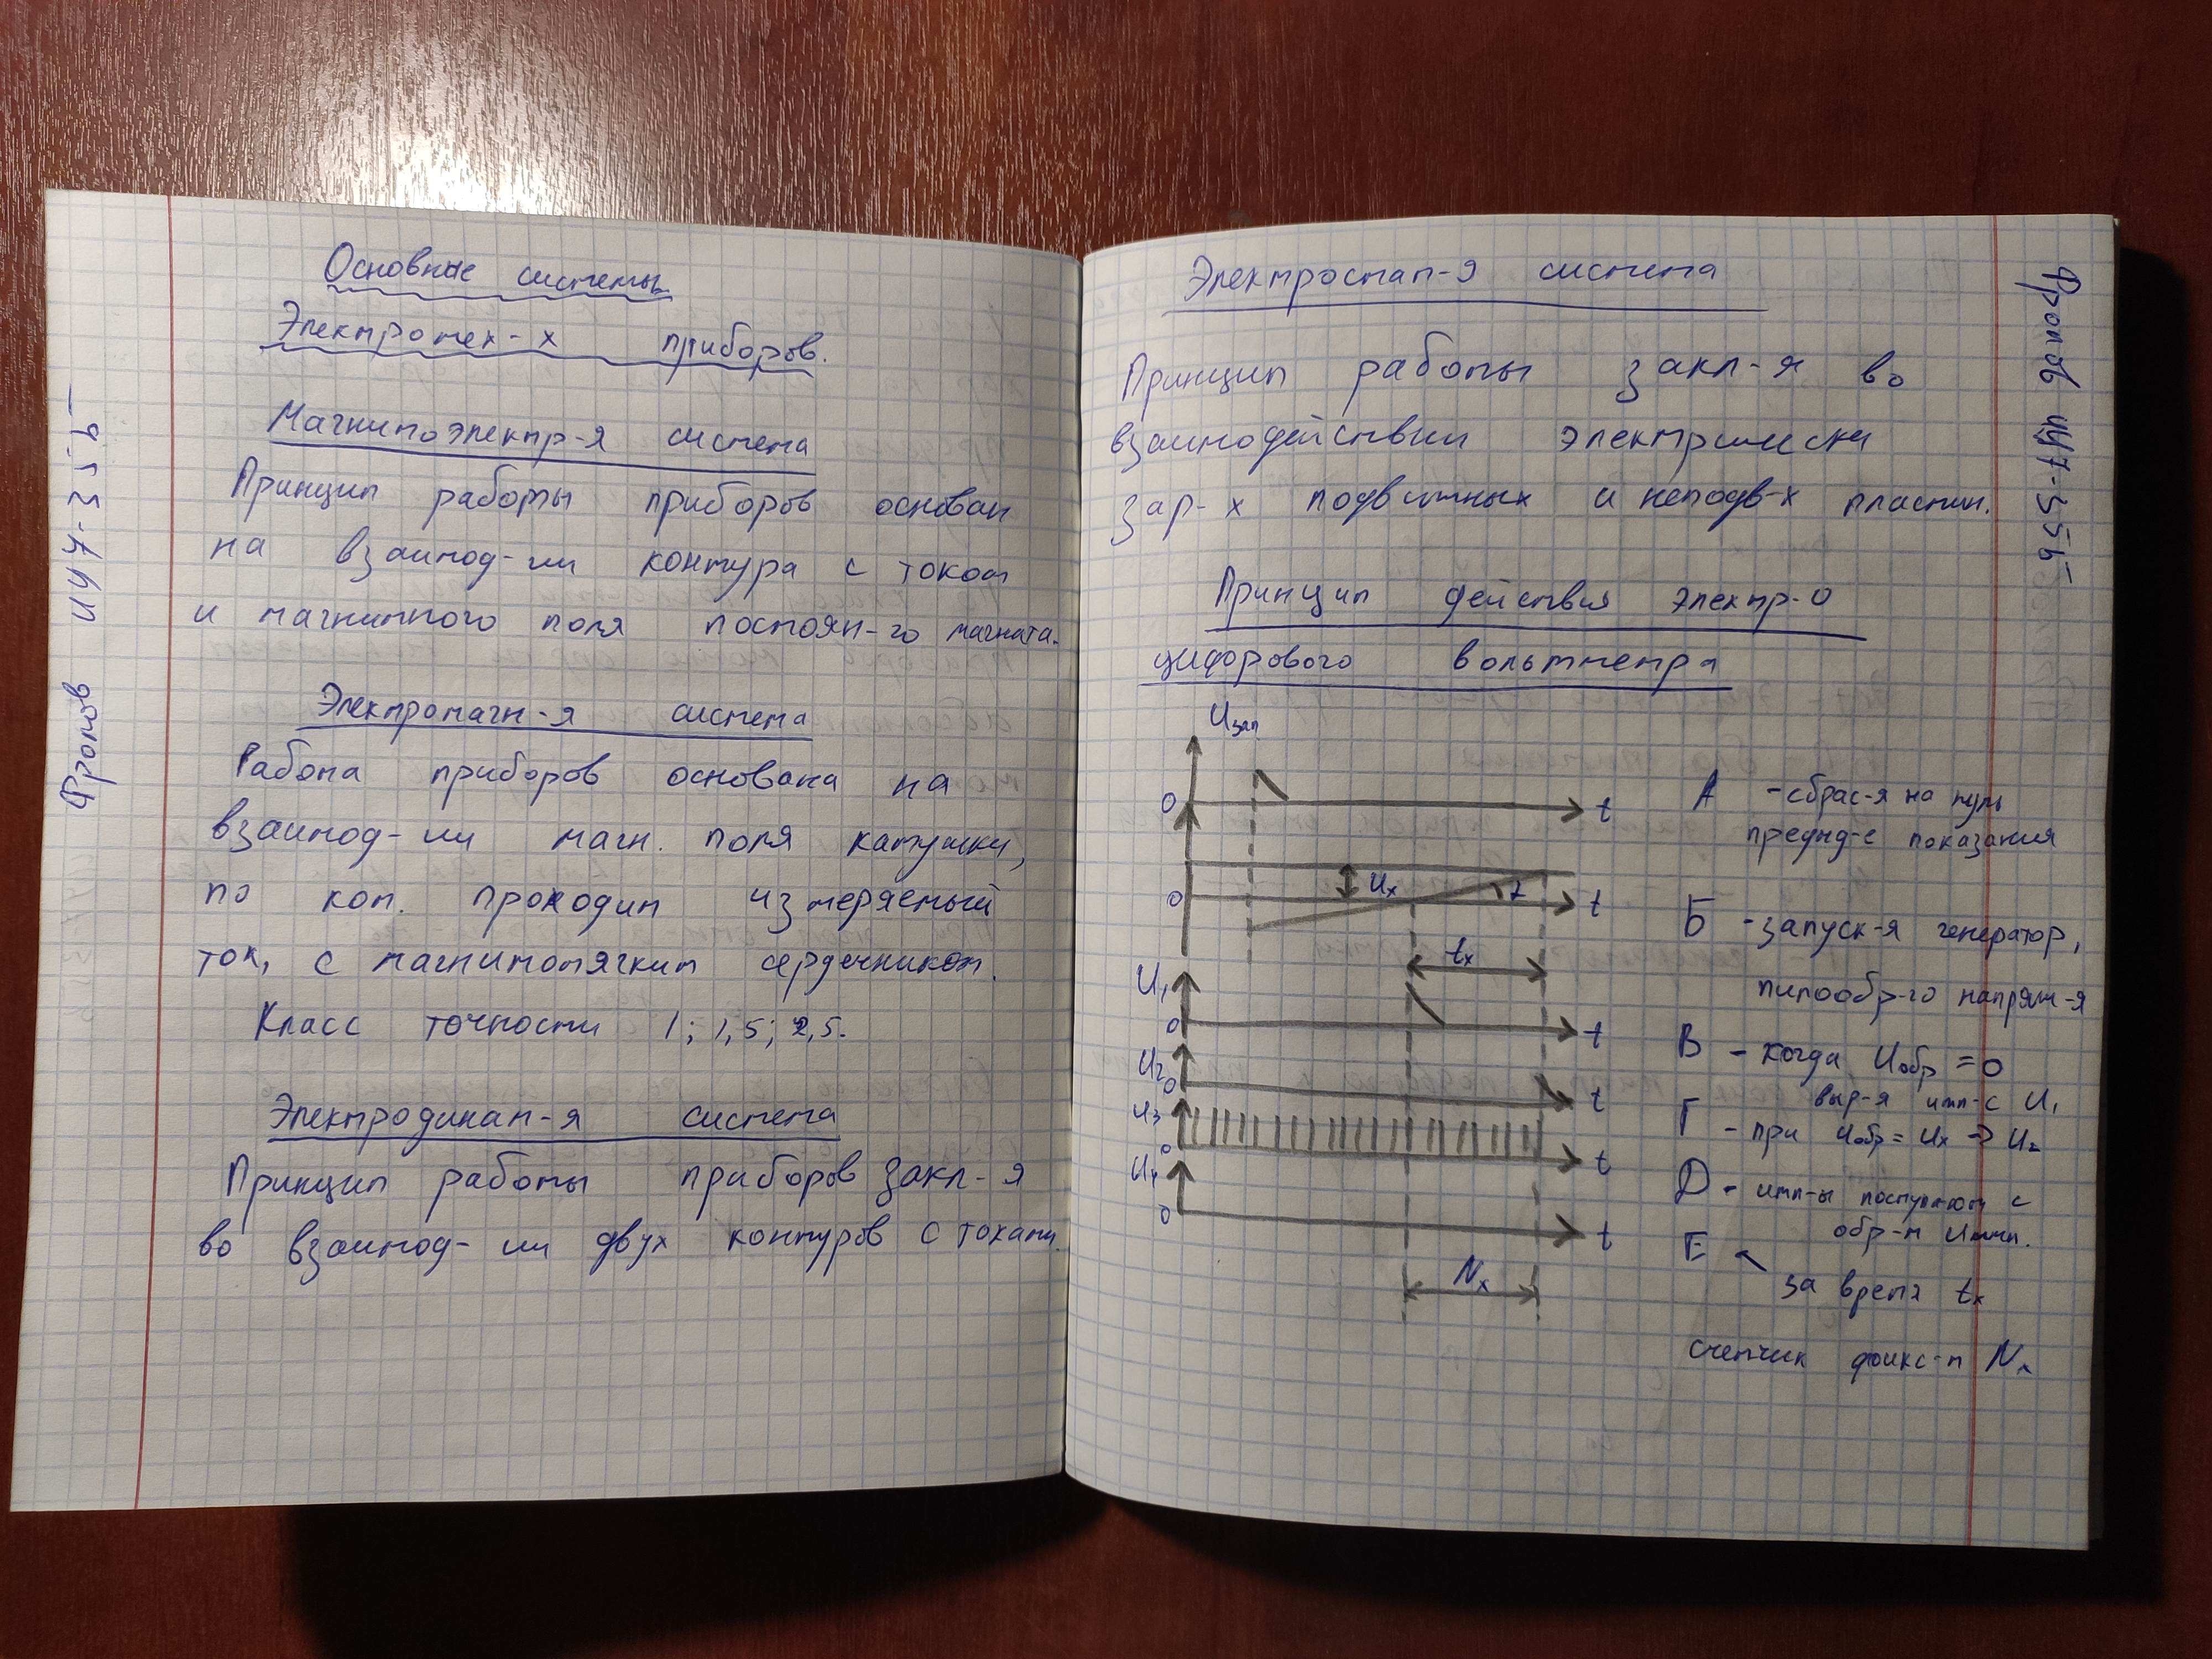 Основные системы
Электромех-х приборов.
Магнитоэлектр-я система
Принцип работы приборов основан
на взаимод-ии контура с током
и магнитного поля постоян-го магнита.
Электромагн-я система
Работа приборов основана на
взаимод-ии магн. поля катушки,
по кот. проходит измеряемый
ток, с магнитомягким сердечником.
Класс точности 1; 1,5; 2,5.
Электродинам-я система
Принцип работы приборов закл-я
во взаимод-ии двух контуров с токами.
Фромов
Электростат-я система
Принцип работы закл-я во
взаимодействии электрически
зар-х подвижных и неподв-х пластин.
Принцип действия электр-о
цифорового вольтметра
Uзап
0 t
Uх
0 t
tх
U₁
0 t
U₂
0 t
U₃
0 t
U₄
0 t
Nх
А - сбрас-я на нуль
показания
Б - запуск-я генератор,
пилообр-го напряж-я
В - когда Uобр = 0
выр-я имп-с U₁
Г - при Uобр = Uх → U₂
Д - имп-ы поступают с
обр-м
Е -
за время tх
счетчик фикс-т Nх
Фромов